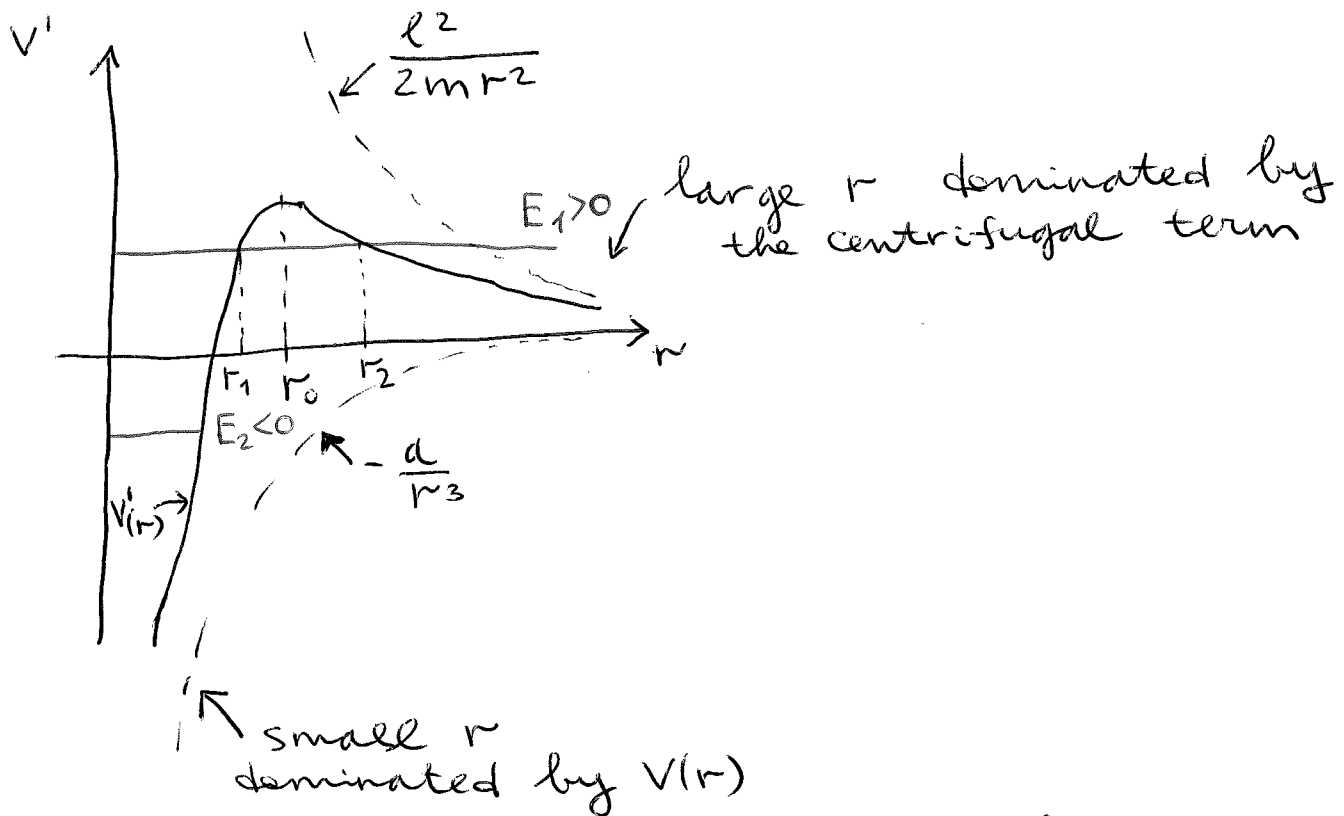 V'
ℓ²
2mr²
large r dominated by
the centrifugal term
E₁>0
r
r₁ r₀ r₂
E₂<0
- a
r³
V'(r)
small r
dominated by V(r)